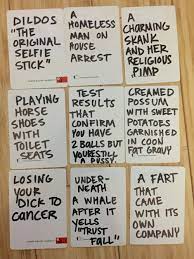 DILDOS
"THE
ORIGINAL
SELFIE
STICK"
A
HOMELESS
MAN ON
HOUSE
ARREST
A
CHARMING
SKANK
AND HER
RELIGIOUS
PIMP
PLAYING
HORSE
SHOES
WITH
TOILET
SEATS
TEST
RESULTS
THAT
CONFIRM
YOU HAVE
2 BALLS BUT
YOU'RE STILL
A PUSSY
CREAMED
POSSUM
WITH SWEET
POTATOES
GARNISHED
IN COON
FAT GRAVY
LOSING
YOUR
DICK TO
CANCER
UNDER-
NEATH
A WHALE
AFTER IT
YELLS
"TRUST
FALL"
A FART
THAT
CAME
WITH ITS
OWN
COMPANY